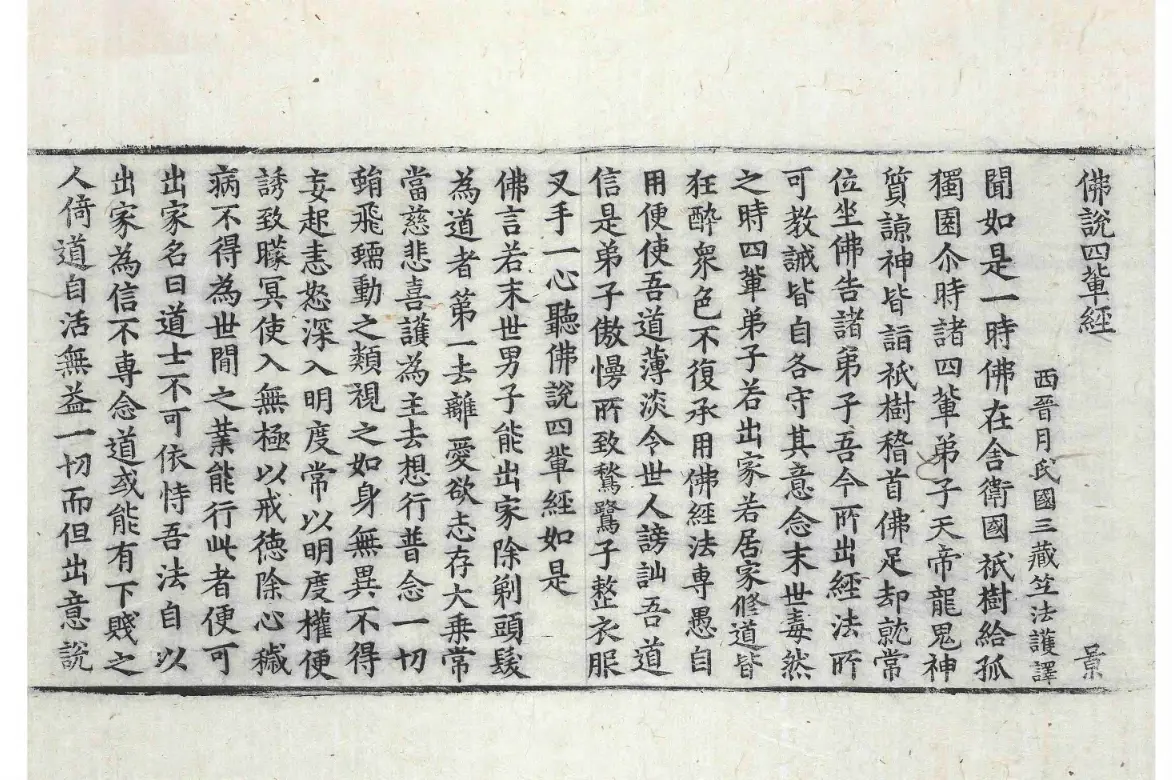 佛說四輩經 景
西晉月氏國三藏竺法護譯
聞如是一時佛在舍衛國祇樹給孤
獨園尒時諸四輩弟子天帝龍鬼神
質諒神皆詣祇樹稽首佛足却就常
位坐佛告諸弟子吾今所出經法所
可教誡皆自各守其意念末世毒然
之時四輩弟子若出家若居家修道皆
狂醉衆色不復承用佛經法専愚自
用便使吾道薄淡令世人謗訕吾道
信是弟子傲慢所致鶖鷺子整衣服
叉手一心聽佛說四輩經如是
佛言若末世男子能出家除剃頭髮
為道者第一去離愛欲志存大乗常
當慈悲喜護為主去想行普念一切
蜎飛蠕動之類視之如身無異不得
妄起恚怒深入明度常以明度權便
誘致矇冥使入無極以戒徳除心穢
病不得為世間之業能行此者便可
出家名曰道士不可依恃吾法自以
出家為信不専念道或能有下賤之
人倚道自活無益一切而但出意說